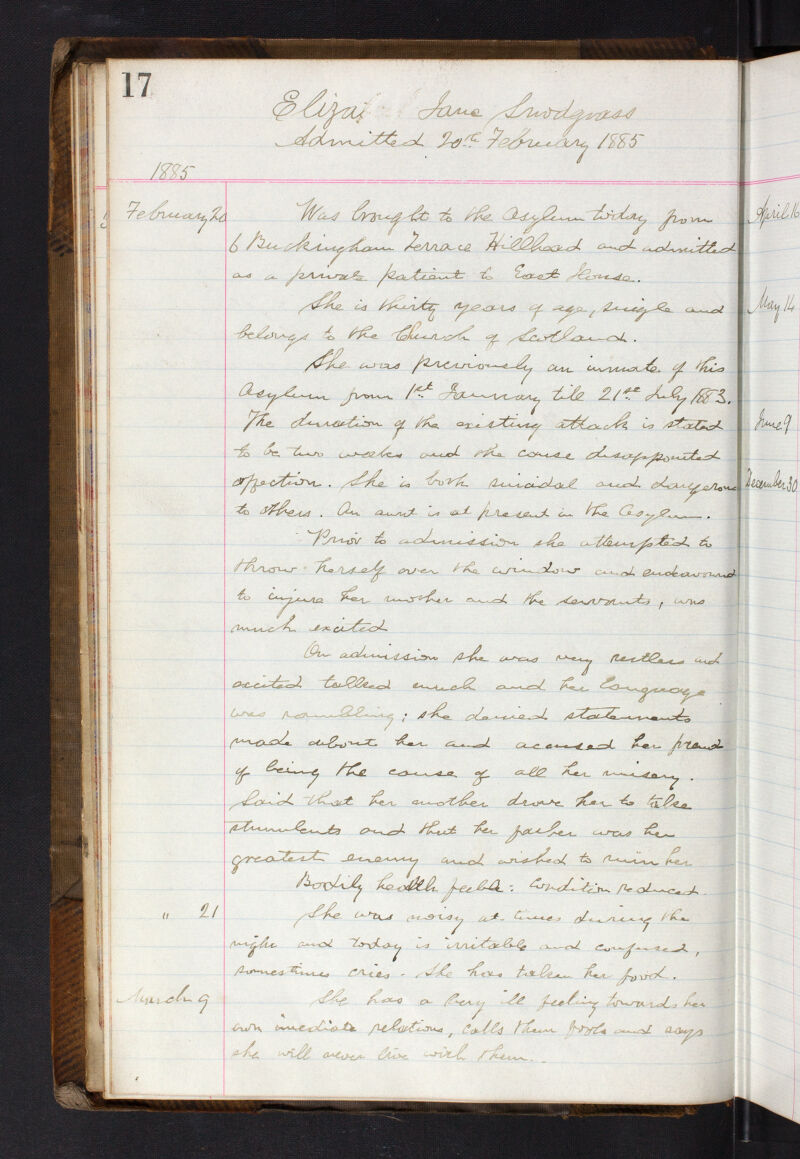 17
Eliza Jane Snodgrass
Admitted 20th February 1885
1885
February 20 Was brought to the Asylum today from
6 Buckingham Terrace Hillhead and admitted
as a private patient to East House.
She is thirty years of age, single and
belongs to the Church of Scotland.
She was previously an inmate of this
Asylum from 1st January till 21st July 1883.
The duration of the existing attack is stated
to be two weeks and the cause disappointed
affection. She is both suicidal and dangerous
to others. An aunt is at present in the Asylum.
Prior to admission she attempted to
throw herself over the window and endeavoured
to injure her mother and the servants, was
much excited
On admission she was very restless and
excited talked much and her language
was rambling; she denied statements
made about her and accused her friends
of being the cause of all her misery.
Said that her mother drove her to take
stimulents and that her father was her
greatest enemy and wished to ruin her
Bodily health feeble: Condition reduced.
" 21 She was noisy at times during the
night and today is irritable and confused,
sometimes cries. She has taken her food.
March 9 She has a very ill feeling towards her
own imediate relations, calls them fools and says
she will never live with them.
April 16
May 14
June 9
December 30